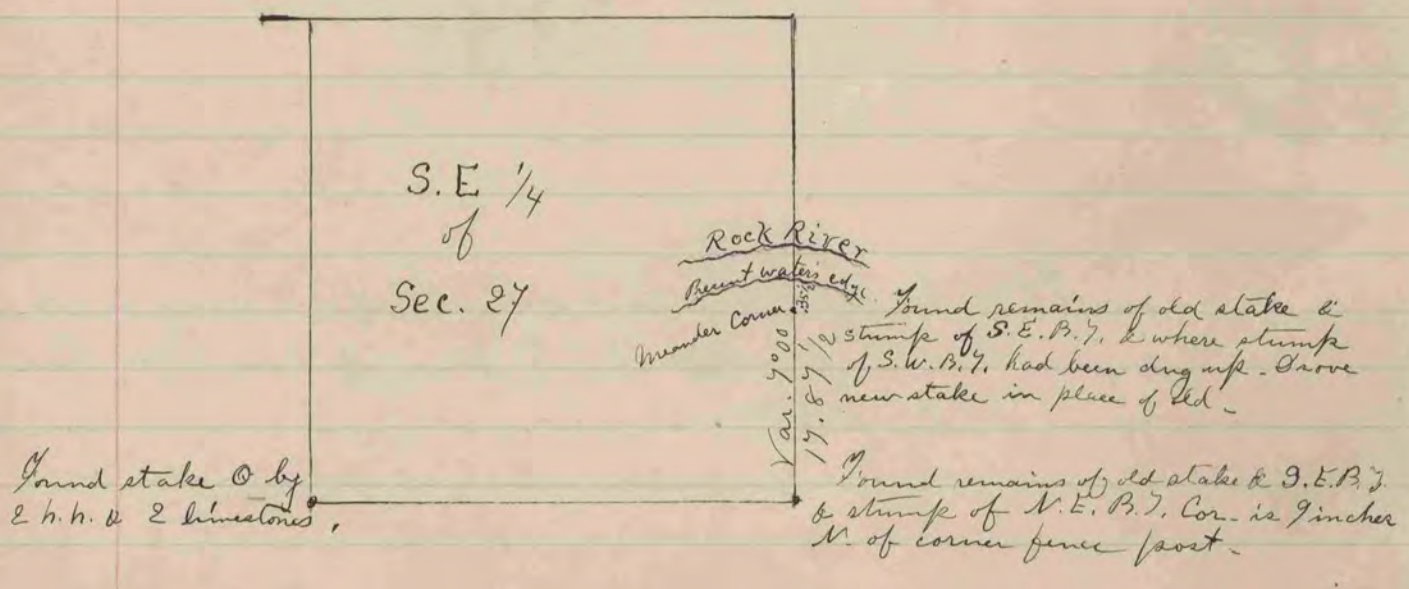 S. E 1/4
of
Sec. 27
Rock River
Present water's edge.
Meander Corner
.35½
Var. 7°00
17.67 1/2
Found remains of old stake &
stump of S. E. B. T. & where stump
of S. W. B. T. had been dug up. Drove
new stake in place of old.
Found stake by
2 h. h. & 2 limestones.
Found remains of old stake & S. E. B. T.
& stump of N. E. B. T. Cor. is 9 inches
N. of corner fence post.